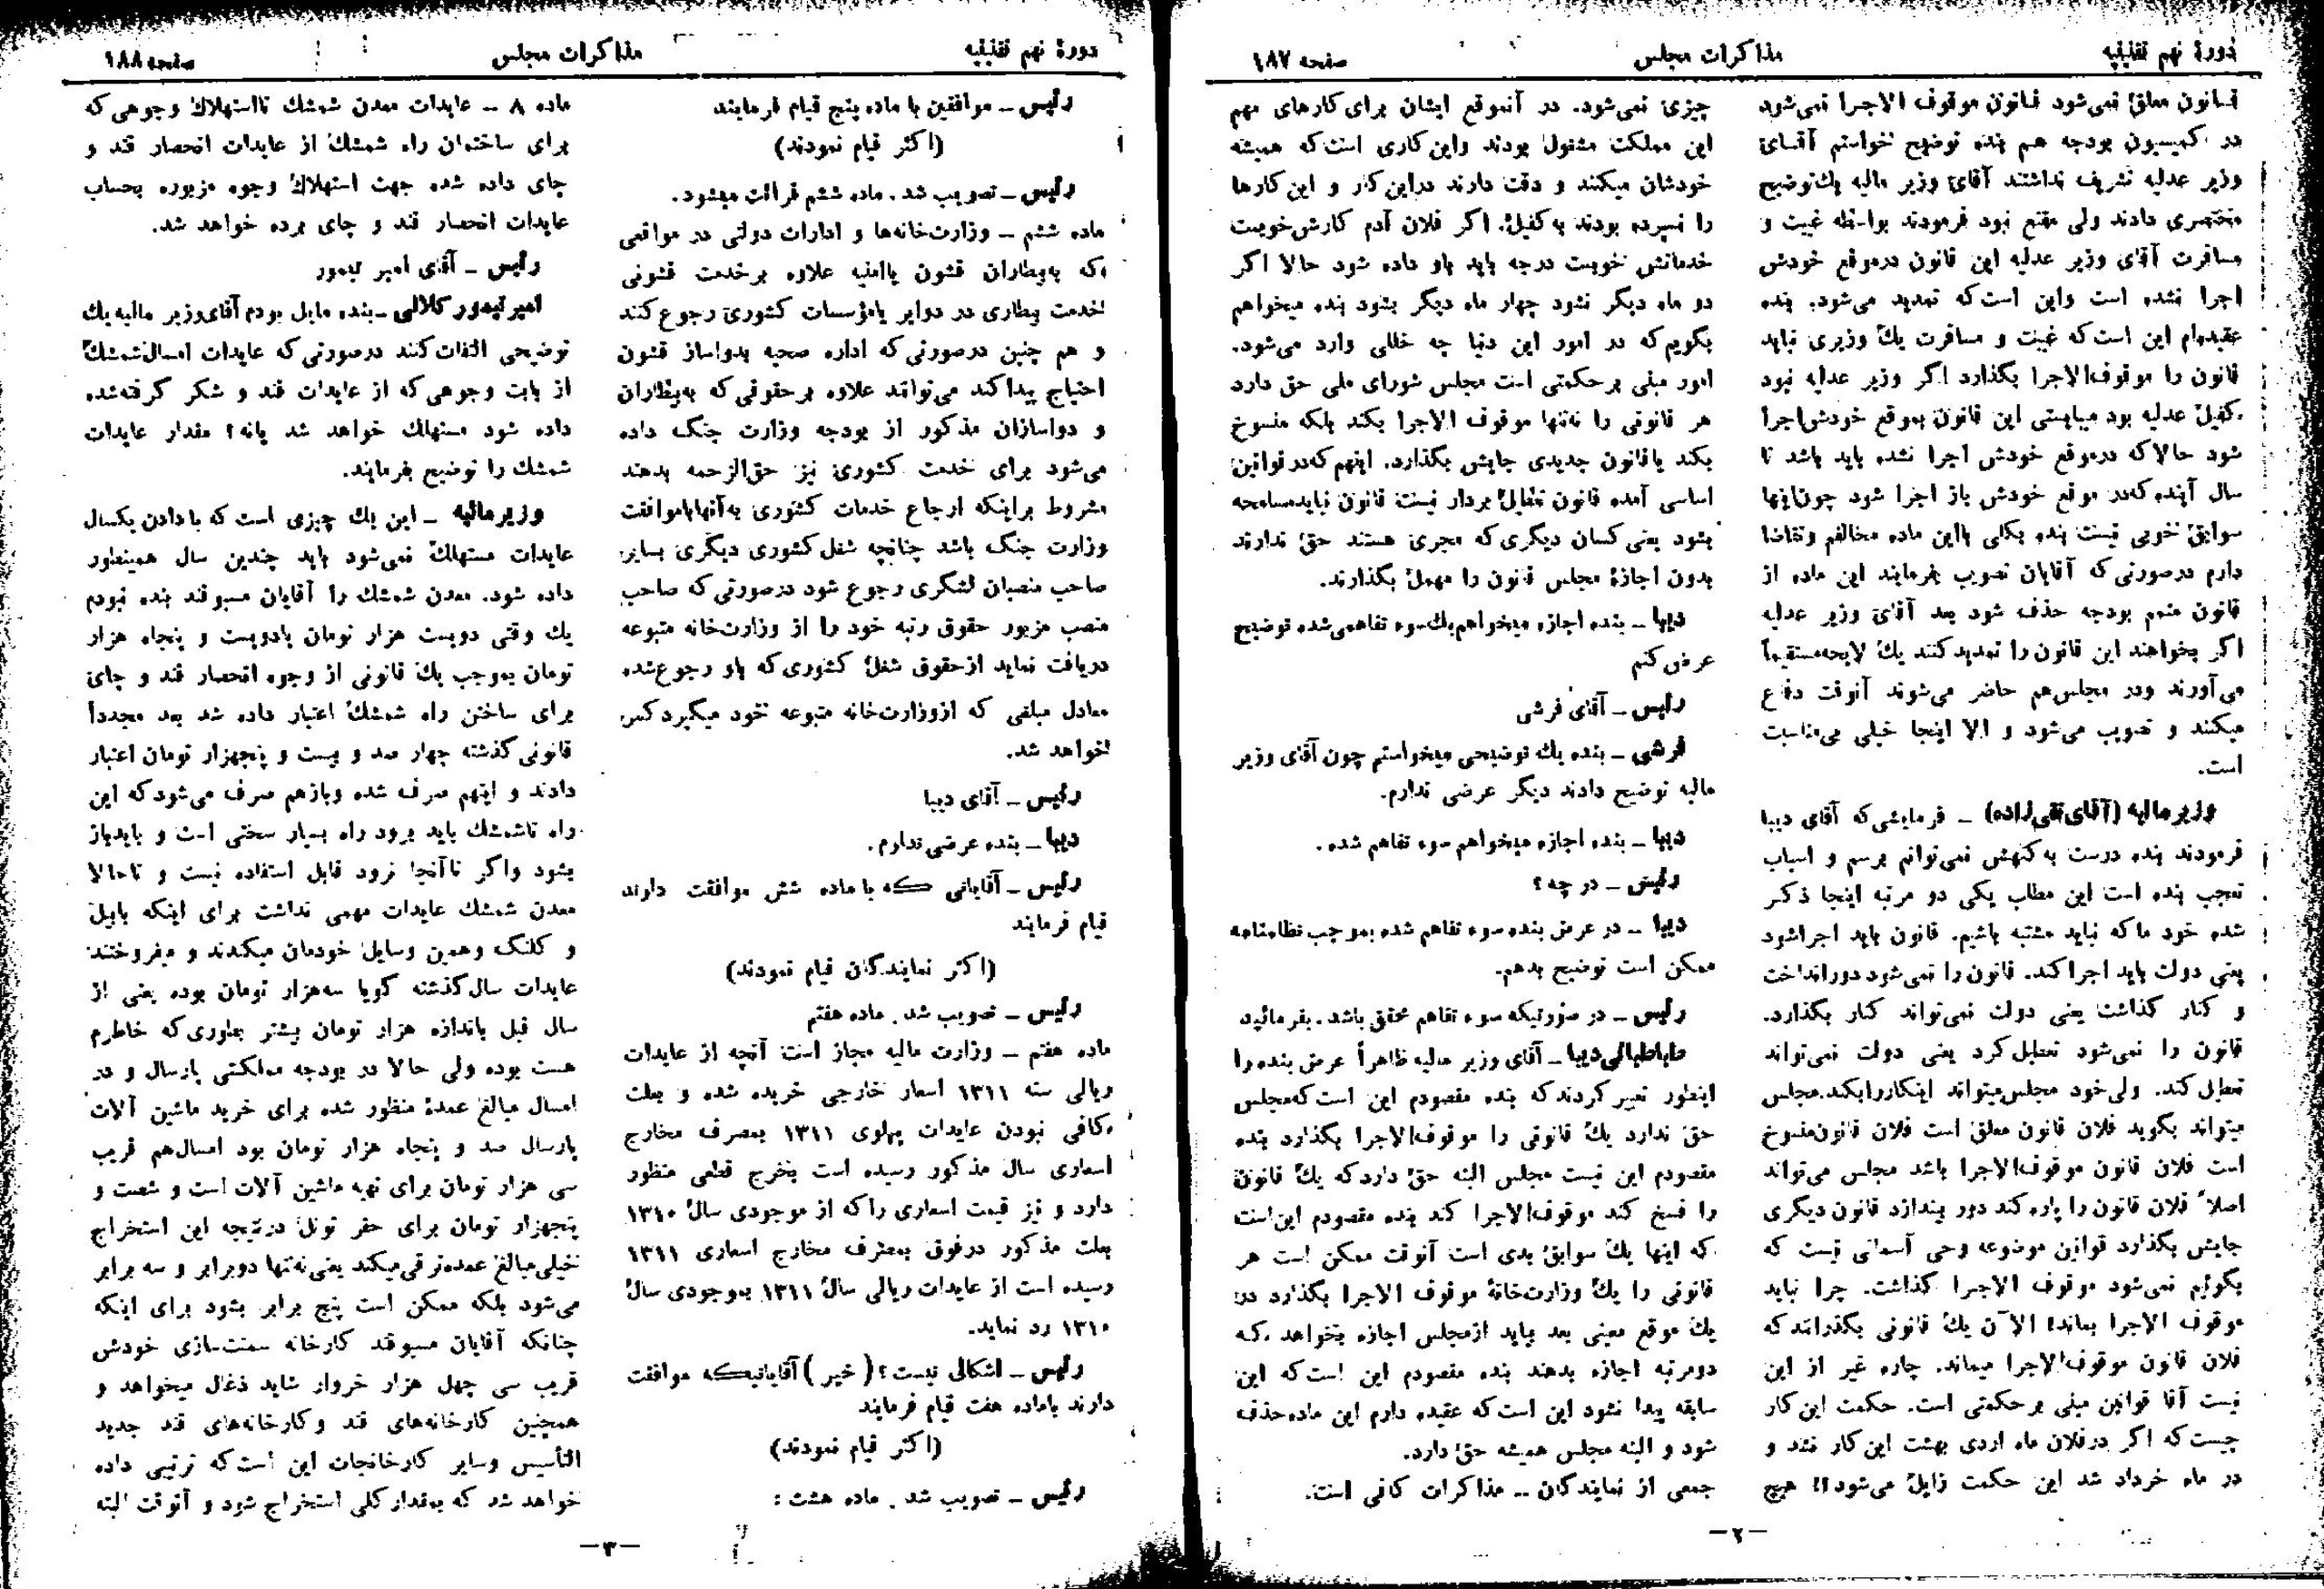 دورهٔ نهم تقنینیه
مذاکرات مجلس
صفحه ۱۸۷
قانون معلق نمی‌شود قانون موقوف الاجرا نمی‌شود
در کمیسیون بودجه هم بنده توضیح خواستم آقای
وزیر عدلیه تشریف نداشتند آقای وزیر مالیه یك توضیح
مختصری دادند ولی مقنع نبود فرمودند بواسطه غیبت و
مسافرت آقای وزیر عدلیه این قانون درموقع خودش
اجرا نشده است واین است که تمدید می‌شود. بنده
عقیده‌ام این است که غیبت و مسافرت یك وزیری نباید
قانون را موقوف‌الاجرا بگذارد اگر وزیر عدلیه نبود
کفیل عدلیه بود میبایستی این قانون بموقع خودش اجرا
شود حالا که درموقع خودش اجرا نشده باید باشد تا
سال آینده که‌در موقع خودش باز اجرا شود چون اینها
سوابق خوبی نیست بنده بکلی بااین ماده مخالفم وتقاضا
دارم درصورتی که آقایان تصویب بفرمایند این ماده از
قانون متمم بودجه حذف شود بعد آقای وزیر عدلیه
اگر بخواهند این قانون را تمدید کنند یك لایحه مستقیماً
می‌آورند ودر مجلس هم حاضر می‌شوند آنوقت دفاع
میکنند و تصویب می‌شود و الا اینجا خیلی بی‌مناسبت
است.
وزیر مالیه (آقای تقی‌زاده) ـ فرمایشی که آقای دیبا
فرمودند بنده درست به‌کنهش نمی‌توانم برسم و اسباب
تعجب بنده است این مطلب یکی دو مرتبه اینجا ذکر
شده خود ما که نباید مشتبه باشیم. قانون باید اجرا شود
یعنی دولت باید اجرا کند. قانون را نمی‌شود دورانداخت
و کنار گذاشت یعنی دولت نمی‌تواند کنار بگذارد.
قانون را نمی‌شود تعطیل کرد یعنی دولت نمی‌تواند
تعطیل کند. ولی خود مجلس میتواند اینکار رابکند مجلس
میتواند بگوید فلان قانون معلق است فلان قانون منسوخ
است فلان قانون موقوف‌الاجرا باشد مجلس می‌تواند
اصلاً فلان قانون را پاره کند دور بیندازد قانون دیگری
جایش بگذارد قوانین موضوعه وحی آسمانی نیست که
بگوئیم نمی‌شود موقوف الاجرا گذاشت. چرا نباید
موقوف الاجرا بماند؟ الآن یك قانونی بگذرانند که
فلان قانون موقوف‌الاجرا میماند. چاره غیر از این
نیست آقا قوانین مبنی بر حکمتی است. حکمت این کار
چیست که اگر در فلان ماه اردی بهشت این کار نشد و
در ماه خرداد شد این حکمت زایل می‌شود؟! هیچ
چیزی نمی‌شود. در آنموقع ایشان برای کارهای مهم
این مملکت مشغول بودند واین کاری است که همیشه
خودشان میکنند و دقت دارند دراین کار و این کارها
را نسپرده بودند به کفیل. اگر فلان آدم کارش خوبست
خدماتش خوبست درجه باید باو داده شود حالا اگر
دو ماه دیگر نشود چهار ماه دیگر بشود بنده میخواهم
بگویم که در امور این دنیا چه خللی وارد می‌شود.
امور مبنی بر حکمتی است مجلس شورای ملی حق دارد
هر قانونی را نه‌تنها موقوف الاجرا بکند بلکه منسوخ
بکند یا قانون جدیدی جایش بگذارد. اینهم که‌در قوانین
اساسی آمده قانون تعطیل بردار نیست قانون نبایدمسامحه
بشود یعنی کسان دیگری که مجری هستند حق ندارند
بدون اجازهٔ مجلس قانون را مهمل بگذارند.
دیبا ـ بنده اجازه میخواهم یك سوء تفاهمی شده توضیح
عرض کنم
رئیس ـ آقای فرشی
فرشی ـ بنده یك توضیحی میخواستم چون آقای وزیر
مالیه توضیح دادند دیگر عرضی ندارم.
دیبا ـ بنده اجازه میخواهم سوء تفاهم شده.
رئیس ـ در چه؟
دیبا ـ در عرض بنده سوء تفاهم شده بموجب نظامنامه
ممکن است توضیح بدهم.
رئیس ـ در صورتیکه سوء تفاهم محقق باشد. بفرمائید
طباطبائی دیبا ـ آقای وزیر مالیه ظاهراً عرض بنده را
اینطور تعبیر کردند که بنده مقصودم این است که مجلس
حق ندارد یك قانونی را موقوف‌الاجرا بگذارد بنده
مقصودم این نیست مجلس البته حق دارد که یك قانون
را فسخ کند موقوف‌الاجرا کند بنده مقصودم این است
که اینها یك سوابق بدی است آنوقت ممکن است هر
قانونی را یك وزارت‌خانهٔ موقوف الاجرا بگذارد در
یك موقع معینی بعد بیاید ازمجلس اجازه بخواهد که
دومرتبه اجازه بدهند بنده مقصودم این است که این
سابقه پیدا نشود این است که عقیده دارم این ماده حذف
شود و البته مجلس همیشه حق دارد.
جمعی از نمایندگان ـ مذاکرات کافی است.
ـ۲ـ
دورهٔ نهم تقنینیه
مذاکرات مجلس
صفحه ۱۸۸
رئیس ـ موافقین با ماده پنج قیام فرمایند
(اکثر قیام نمودند)
رئیس ـ تصویب شد. ماده ششم قرائت میشود.
ماده ششم ـ وزارت‌خانه‌ها و ادارات دولتی در مواقعی
که به‌بیطاران قشون یاامنیه علاوه بر خدمت قشونی
خدمت بیطاری در دوایر یامؤسسات کشوری رجوع کنند
و هم چنین درصورتی که اداره صحیه بدواساز قشون
احتیاج پیدا کند می‌توانند علاوه بر حقوقی که به‌بیطاران
و دواسازان مذکور از بودجه وزارت جنگ داده
می‌شود برای خدمت کشوری نیز حق‌الزحمه بدهند
مشروط براینکه ارجاع خدمات کشوری به‌آنهاباموافقت
وزارت جنگ باشد چنانچه شغل کشوری دیگری بسایر
صاحب منصبان لشگری رجوع شود درصورتی که صاحب
منصب مزبور حقوق رتبه خود را از وزارت‌خانه متبوعه
دریافت نماید از حقوق شغل کشوری که باو رجوع شده
معادل مبلغی که ازوزارت‌خانه متبوعه خود میگیرد کسر
خواهد شد.
رئیس ـ آقای دیبا
دیبا ـ بنده عرضی ندارم.
رئیس ـ آقایانی که با ماده شش موافقت دارند
قیام فرمایند
(اکثر نمایندگان قیام نمودند)
رئیس ـ تصویب شد. ماده هفتم
ماده هفتم ـ وزارت مالیه مجاز است آنچه از عایدات
ریالی سنه ۱۳۱۱ اسعار خارجی خریده شده و بعلت
کافی نبودن عایدات پهلوی ۱۳۱۱ بمصرف مخارج
اسعاری سال مذکور رسیده است بخرج قطعی منظور
دارد و نیز قیمت اسعاری را که از موجودی سال ۱۳۱۰
بعلت مذکور درفوق بمصرف مخارج اسعاری ۱۳۱۱
رسیده است از عایدات ریالی سال ۱۳۱۱ بموجودی سال
۱۳۱۰ رد نماید.
رئیس ـ اشکالی نیست؟ (خیر) آقایانیکه موافقت
دارند باماده هفت قیام فرمایند
(اکثر قیام نمودند)
رئیس ـ تصویب شد. ماده هشت:
ماده ۸ ـ عایدات معدن شمشك تااستهلاك وجوهی که
برای ساختمان راه شمشك از عایدات انحصار قند و
چای داده شده جهت استهلاك وجوه مزبوره بحساب
عایدات انحصار قند و چای برده خواهد شد.
رئیس ـ آقای امیر تیمور
امیر تیمور کلالی ـ بنده مایل بودم آقای وزیر مالیه یك
توضیحی التفات کنند درصورتی که عایدات امسال شمشك
از بابت وجوهی که از عایدات قند و شکر گرفته شده
داده شود مستهلك خواهد شد یانه؟ مقدار عایدات
شمشك را توضیح بفرمایند.
وزیر مالیه ـ این یك چیزی است که با دادن یکسال
عایدات مستهلك نمی‌شود باید چندین سال همینطور
داده شود. معدن شمشك را آقایان مسبوقند بنده نبودم
یك وقتی دویست هزار تومان یادویست و پنجاه هزار
تومان بموجب یك قانونی از وجوه انحصار قند و چای
برای ساختن راه شمشك اعتبار داده شد بعد مجدداً
قانونی گذشته چهار صد و بیست و پنجهزار تومان اعتبار
دادند و اینهم صرف شده وبازهم صرف می‌شود که این
راه تاشمشك باید برود راه بسیار سختی است و بایدباز
بشود واگر تاآنجا نرود قابل استفاده نیست و تاحالا
معدن شمشك عایدات مهمی نداشت برای اینکه بابیل
و کلنگ وهمین وسایل خودمان میکندند و میفروختند
عایدات سال گذشته گویا سه‌هزار تومان بوده یعنی از
سال قبل باندازه هزار تومان بیشتر بطوری که خاطرم
هست بوده ولی حالا در بودجه مملکتی پارسال و در
امسال مبالغ عمدهٔ منظور شده برای خرید ماشین آلات
پارسال صد و پنجاه هزار تومان بود امسال هم قریب
سی هزار تومان برای تهیه ماشین آلات است و شصت و
پنجهزار تومان برای حفر تونل درنتیجه این استخراج
خیلی مبالغ عمده‌ترقی میکند یعنی نه‌تنها دوبرابر و سه برابر
می‌شود بلکه ممکن است پنج برابر بشود برای اینکه
چنانکه آقایان مسبوقند کارخانه سمنت‌سازی خودش
قریب سی چهل هزار خروار شاید ذغال میخواهد و
همچنین کارخانه‌های قند وکارخانه‌های قند جدید
التأسیس وسایر کارخانجات این است که ترتیبی داده
خواهد شد که بمقدار کلی استخراج شود و آنوقت البته
ـ۳ـ